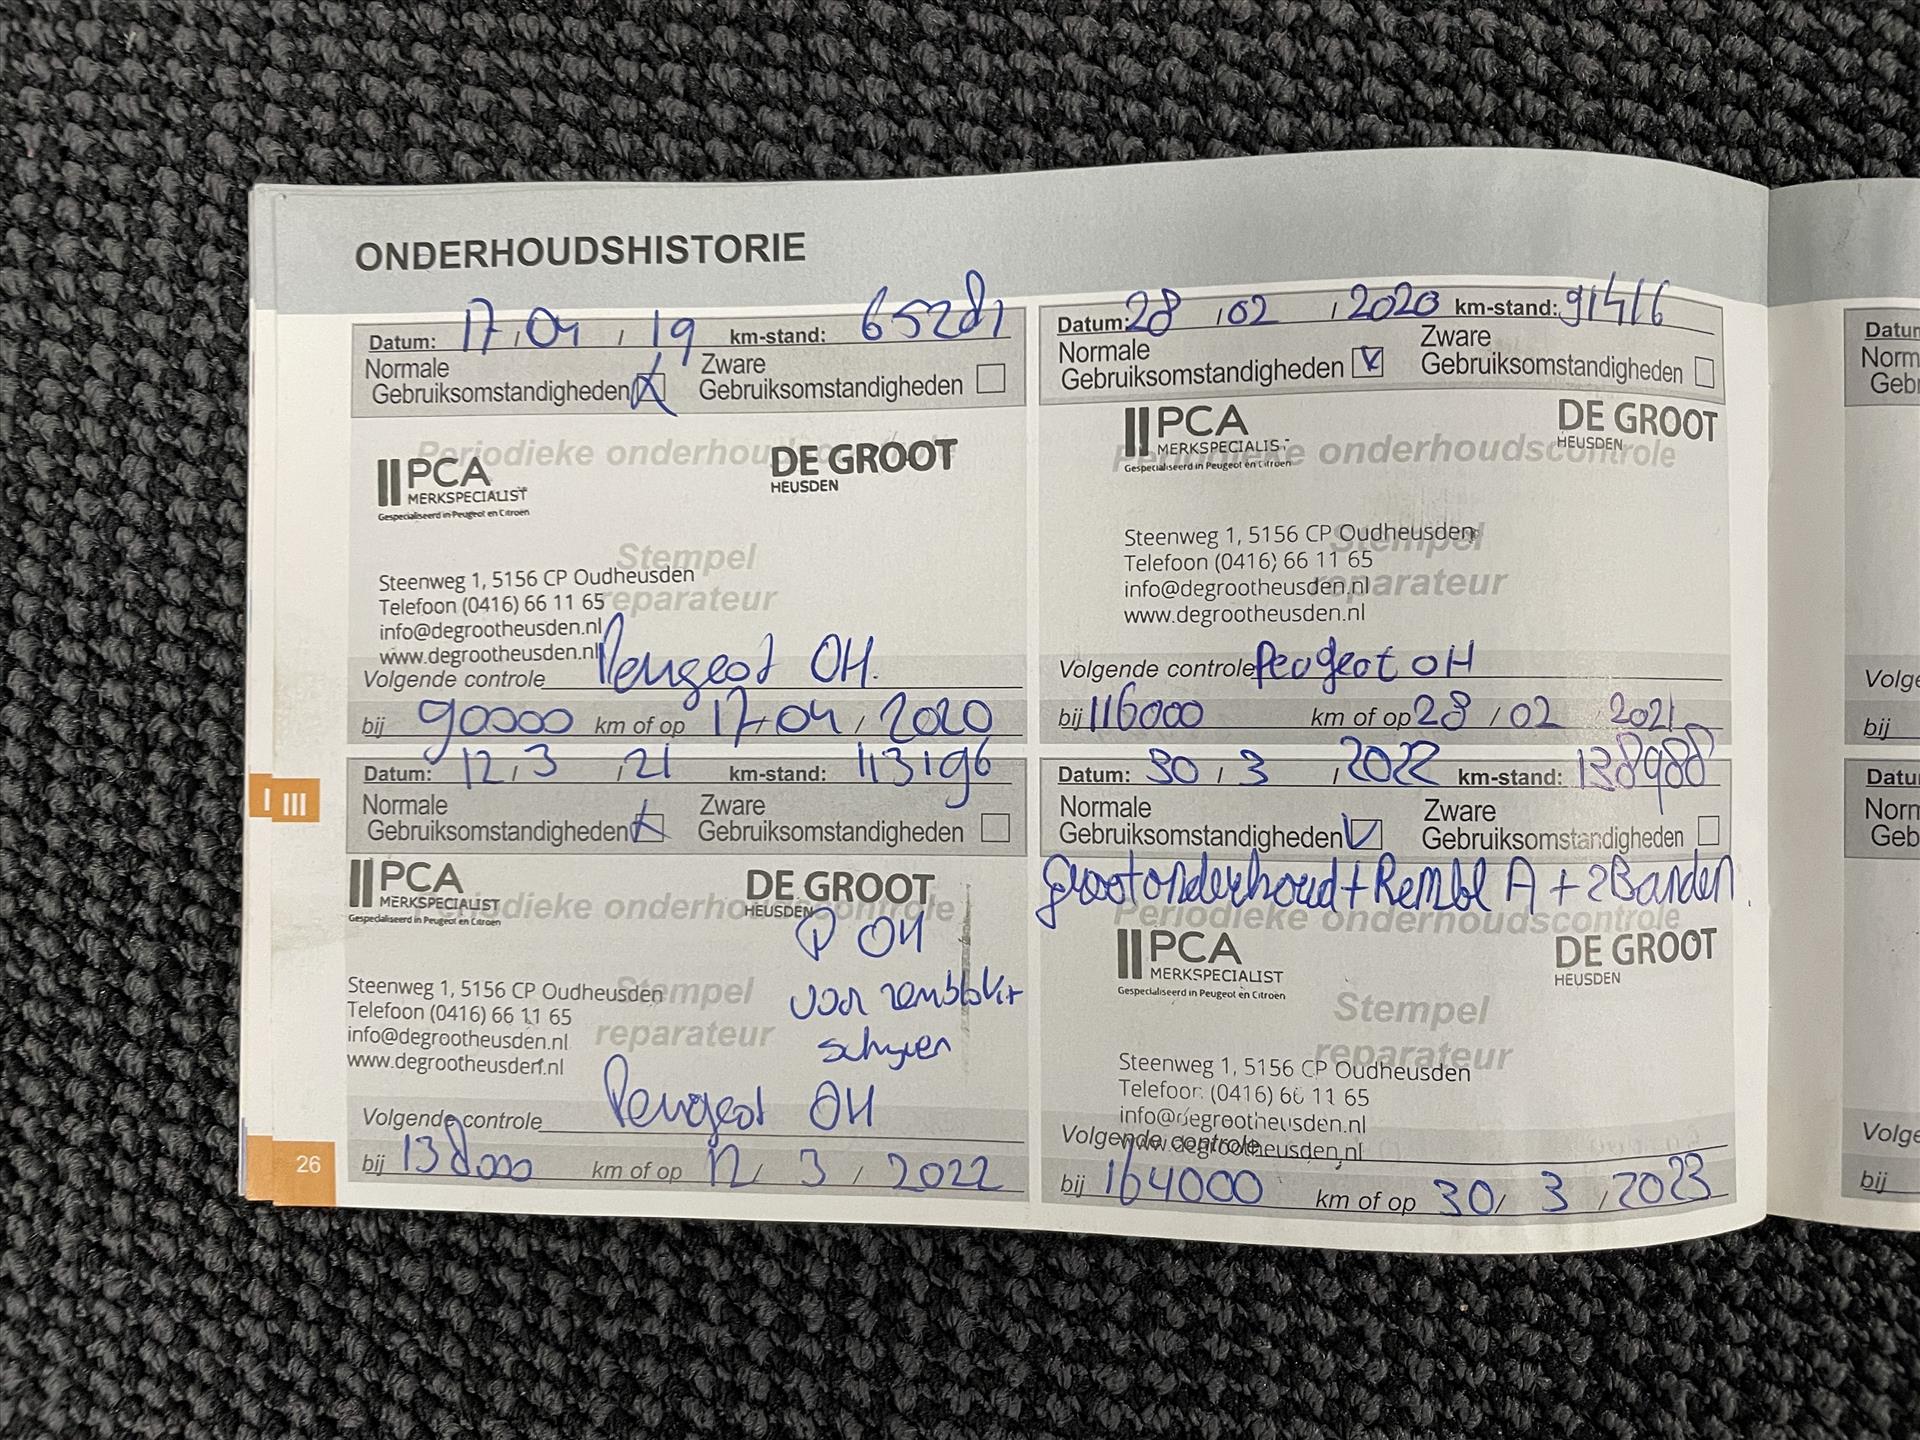 ONDERHOUDSHISTORIE
Datum: 17 / 04 / 19 km-stand: 65281
Normale Gebruiksomstandigheden Zware Gebruiksomstandigheden
Periodieke onderhoudscontrole
PCA DE GROOT
MERKSPECIALIST HEUSDEN
Gespecialiseerd in Peugeot en Citroën
Stempel
reparateur
Steenweg 1, 5156 CP Oudheusden
Telefoon (0416) 66 11 65
info@degrootheusden.nl
www.degrootheusden.nl
Volgende controle Peugeot OH.
bij 90000 km of op 17 / 04 / 2020
Datum: 28 / 02 / 2020 km-stand: 91416
Normale Gebruiksomstandigheden Zware Gebruiksomstandigheden
PCA DE GROOT
MERKSPECIALIST HEUSDEN
Periodieke onderhoudscontrole
Gespecialiseerd in Peugeot en Citroën
Steenweg 1, 5156 CP Oudheusden
Stempel
Telefoon (0416) 66 11 65
info@degrootheusden.nl
reparateur
www.degrootheusden.nl
Volgende controle Peugeot OH
bij 116000 km of op 28 / 02 2021
Datum: 12 / 3 / 21 km-stand: 113196
Normale Gebruiksomstandigheden Zware Gebruiksomstandigheden
PCA DE GROOT
MERKSPECIALIST HEUSDEN
Periodieke onderhoudscontrole
Gespecialiseerd in Peugeot en Citroën
P OH
voor remblok+
schyven
Stempel
reparateur
Steenweg 1, 5156 CP Oudheusden
Telefoon (0416) 66 11 65
info@degrootheusden.nl
www.degrootheusden.nl
Volgende controle Peugeot OH
bij 138000 km of op 12 / 3 / 2022
Datum: 30 / 3 / 2022 km-stand: 138988
Normale Gebruiksomstandigheden Zware Gebruiksomstandigheden
grootonderhoud + Rembl A + 2 Banden.
Periodieke onderhoudscontrole
PCA DE GROOT
MERKSPECIALIST HEUSDEN
Gespecialiseerd in Peugeot en Citroën
Stempel
reparateur
Steenweg 1, 5156 CP Oudheusden
Telefoon: (0416) 66 11 65
info@degrootheusden.nl
www.degrootheusden.nl
Volgende controle
bij 164000 km of op 30 / 3 / 2023
I III
26
Datum
Norm
Geb
Volge
bij
Datu
Norn
Geb
Volge
bij